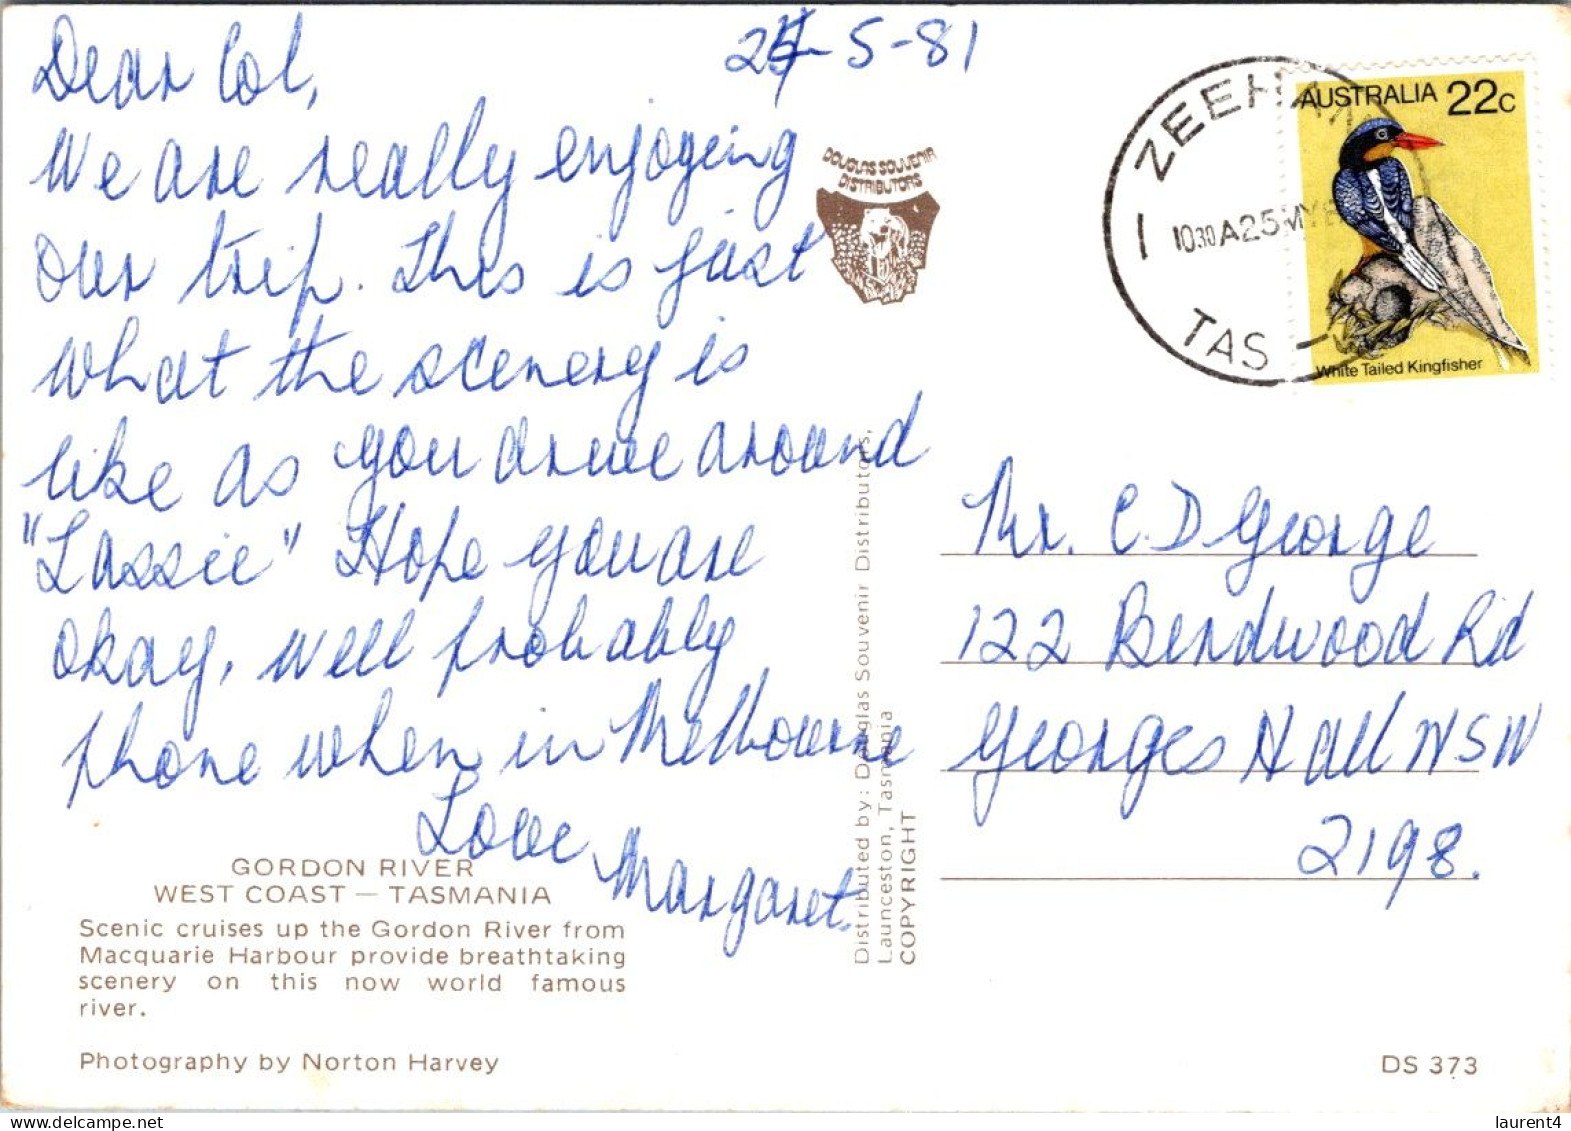 Dear Col,
24-5-81
We are really enjoyeing
our trip. This is just
what the scenery is
like as you drive around
"Lassie" Hope you are
okay, well probably
phone when in Melbourne
Love
Margaret.
GORDON RIVER
WEST COAST — TASMANIA
Scenic cruises up the Gordon River from
Macquarie Harbour provide breathtaking
scenery on this now world famous
river.
Photography by Norton Harvey
DOUGLAS SOUVENIR
DISTRIBUTORS
Distributed by: Douglas Souvenir Distributors,
Launceston, Tasmania
COPYRIGHT
ZEEHAN
1 1030A25MY8
TAS
AUSTRALIA 22c
White Tailed Kingfisher
Mr. C. D George
122 Birdwood Rd
Georges Hall NSW
2198.
DS 373
laurent4